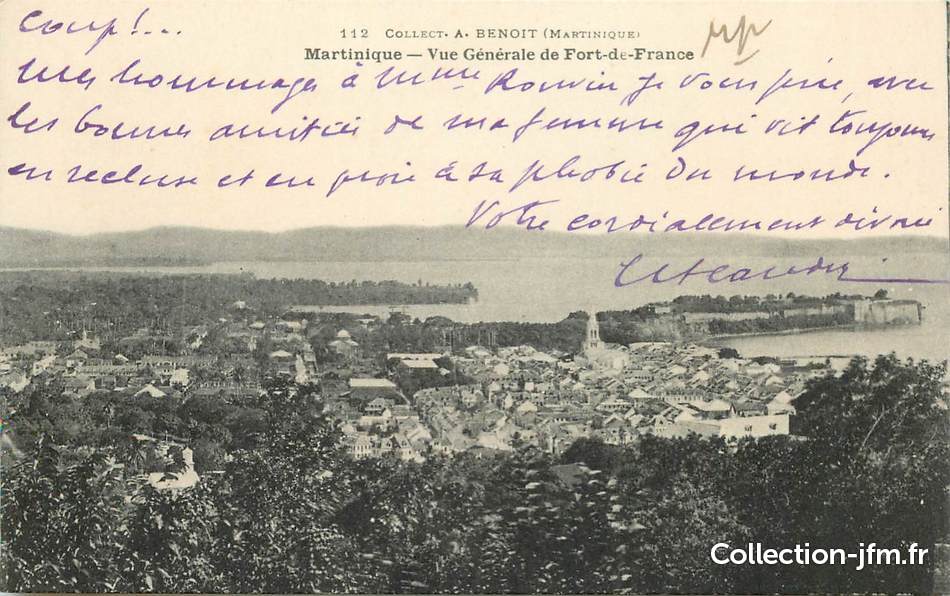 coup!...
112 COLLECT. A. BENOIT (MARTINIQUE)
Martinique — Vue Générale de Fort-de-France
Mes hommages à Mme Rouvier je vous prie, avec
les bonnes amitiés de ma femme qui vit toujours
en recluse et en proie à sa phobie du monde.
Votre cordialement dévoué
Collection-jfm.fr